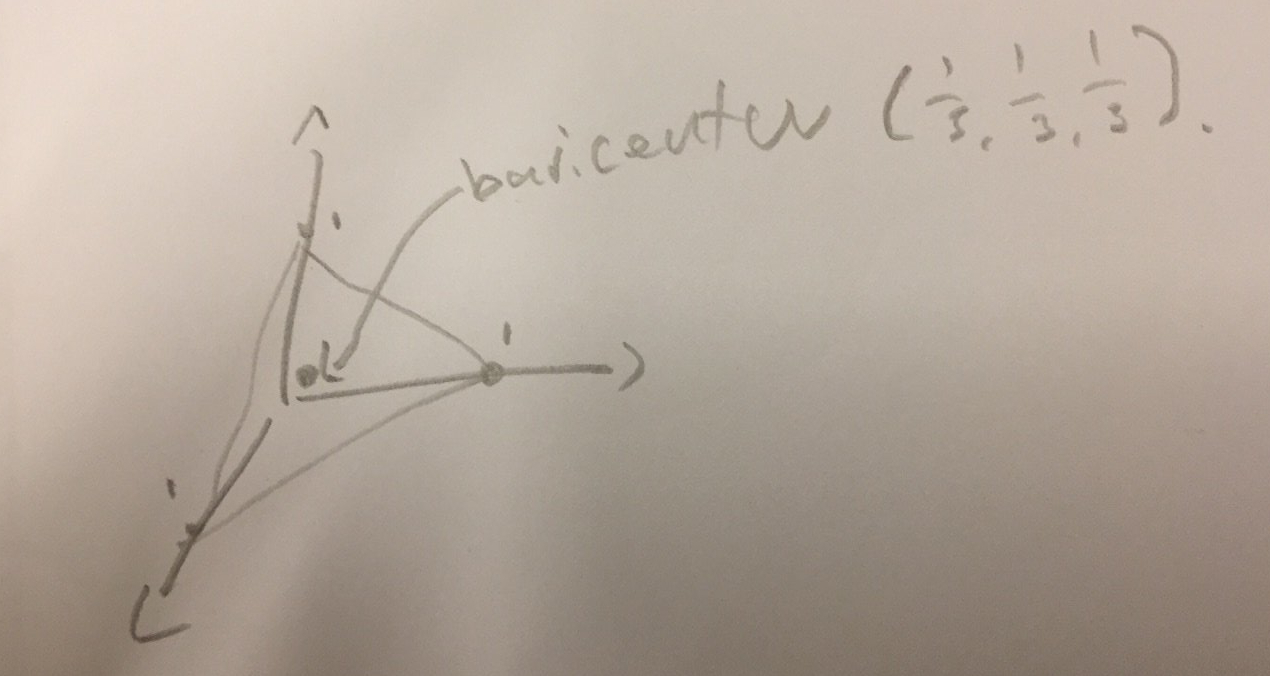 baricenter (1/3, 1/3, 1/3).
1
1
1